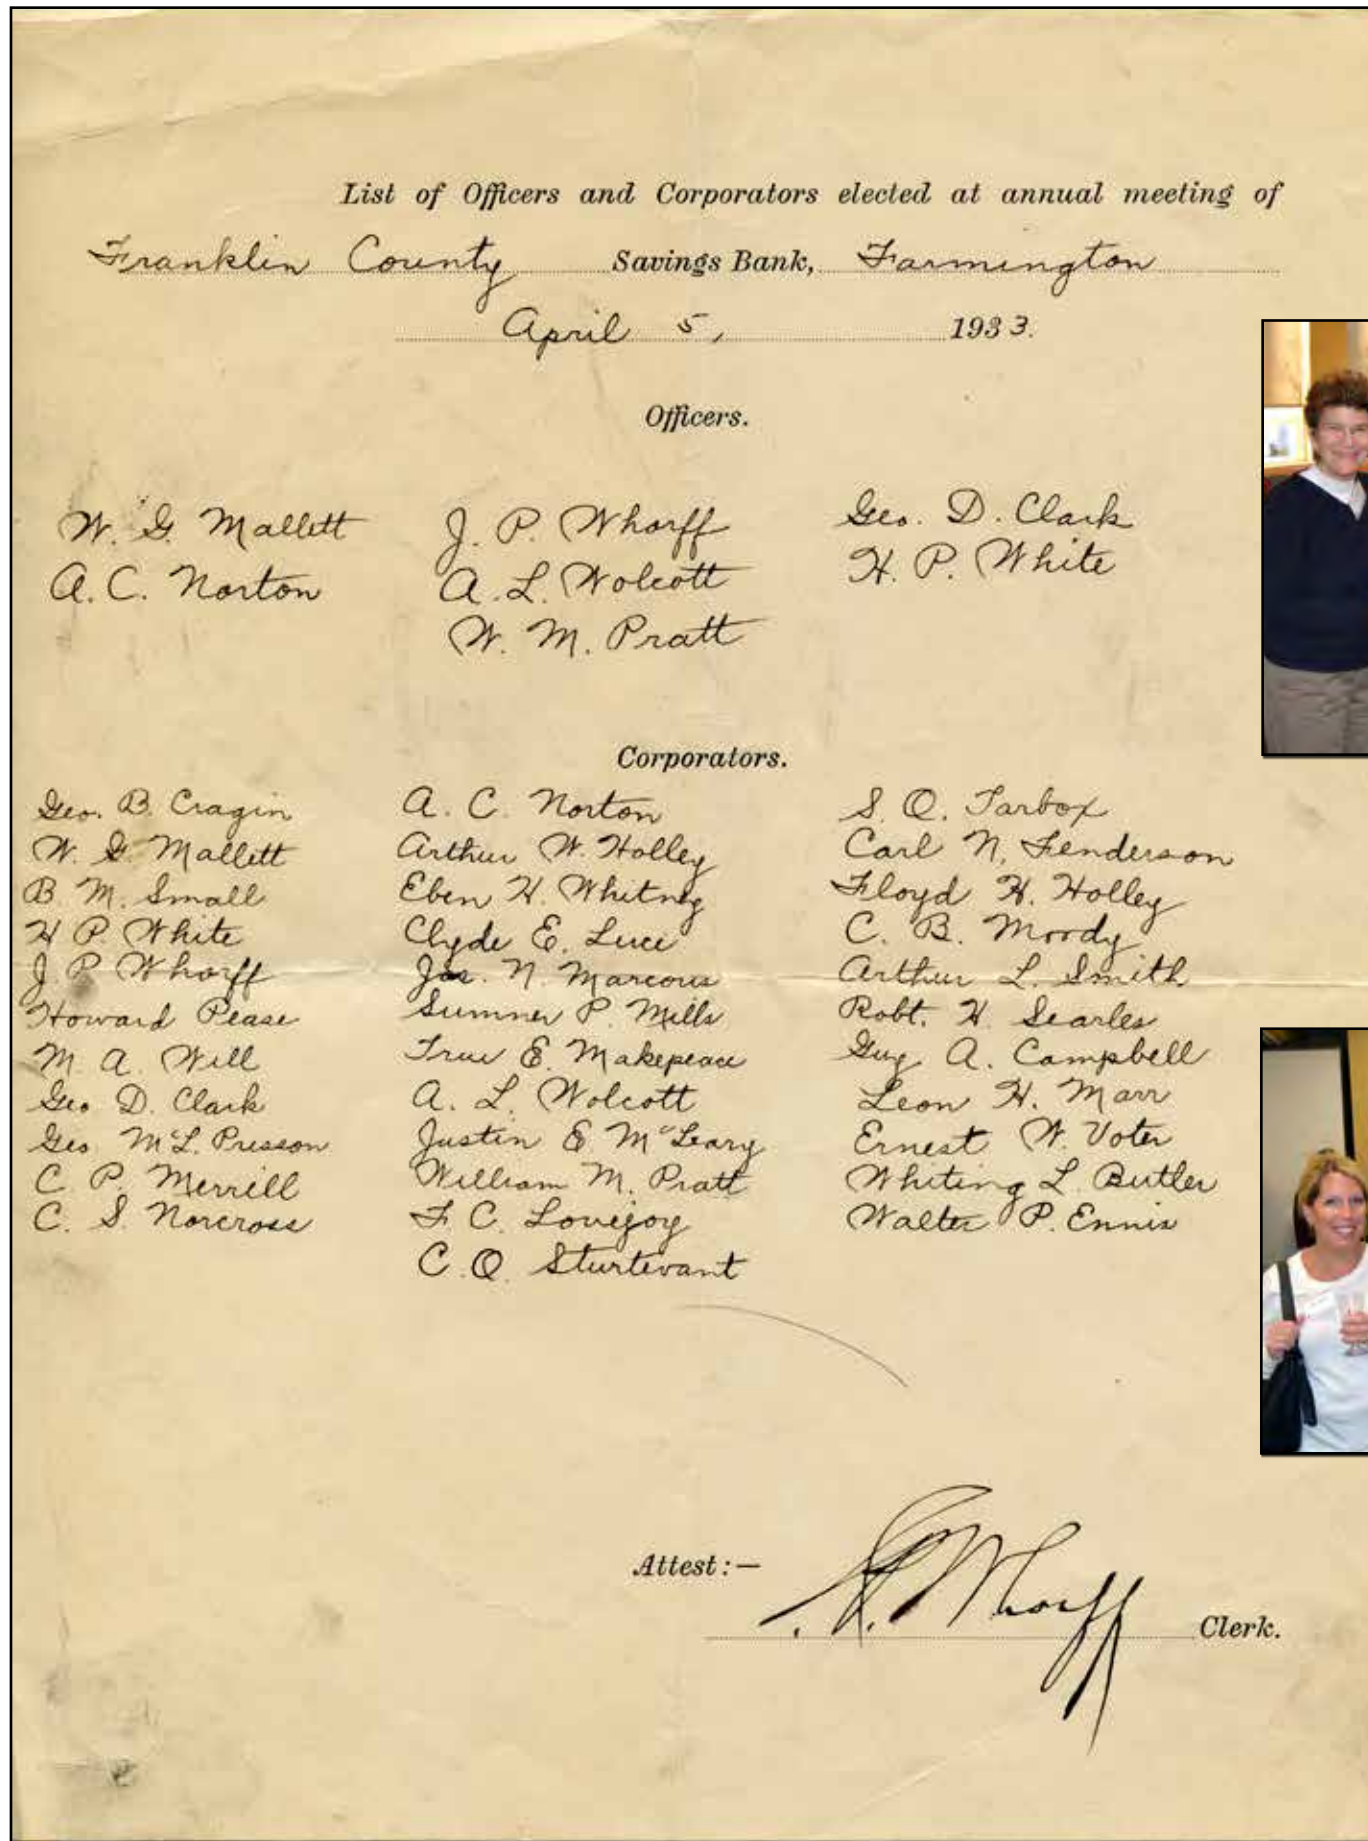 List of Officers and Corporators elected at annual meeting of
Franklin County Savings Bank, Farmington
April 5, 1933.
Officers.
W. G. Mallett
A. C. Norton
J. P. Whorff
A. L. Wolcott
W. M. Pratt
Geo. D. Clark
H. P. White
Corporators.
Geo. B. Cragin
W. G. Mallett
B. M. Small
H P. White
J. P. Whorff
Howard Pease
M. A. Will
Geo D. Clark
Geo McL. Presson
C. P. Merrill
C. S. Norcross
A. C. Norton
Arthur W. Holley
Eben H. Whitney
Clyde E. Luce
Jos. N. Marcous
Sumner P. Mills
True E. Makepeace
A. L. Wolcott
Justin E McLeary
William M. Pratt
F. C. Lovejoy
C. O. Sturtevant
S. O. Tarbox
Carl N. Fenderson
Floyd H. Holley
C. B. Moody
Arthur L. Smith
Robt. H. Searles
Guy A. Campbell
Leon H. Marr
Ernest W. Voter
Whiting L. Butler
Walter P. Ennis
Attest:—
Whorff Clerk.